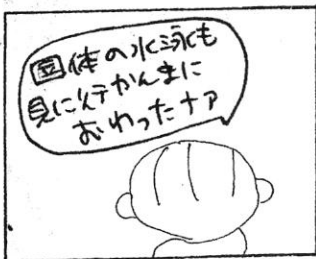 国体の水泳も
見に行かんまに
おわったナァ